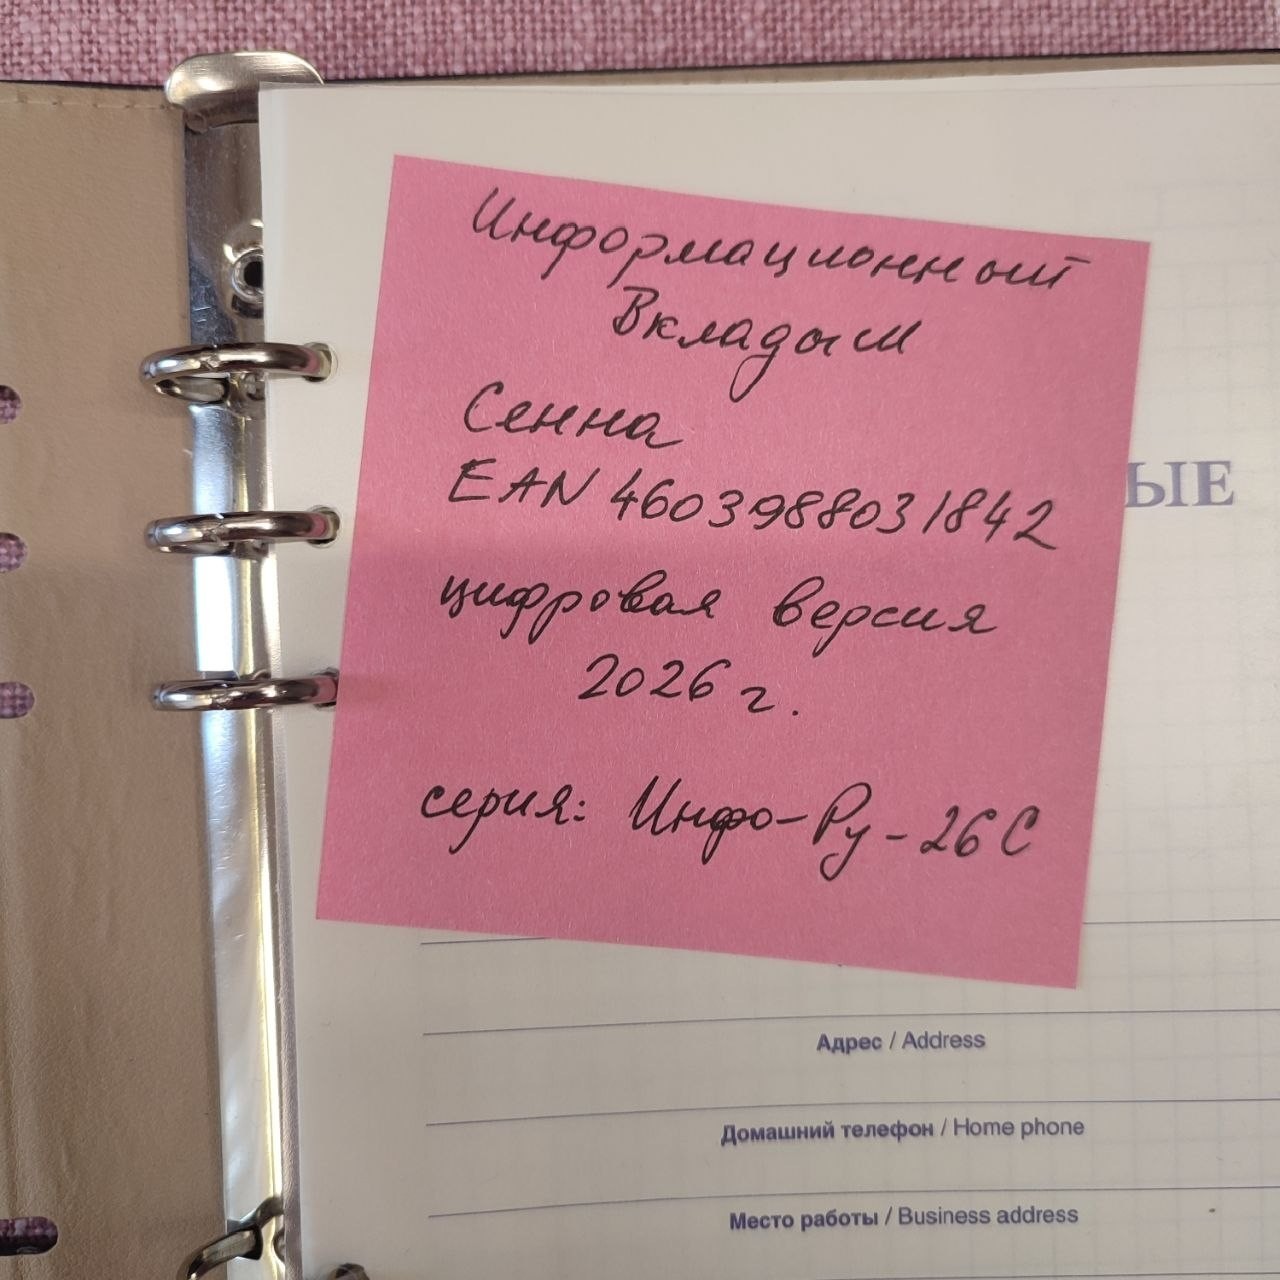 Информационный
Вкладыш
Сенна
EAN 4603988031842
цифровая версия
2026 г.
серия: Инфо-Ру-26С
ЫЕ
Адрес / Address
Домашний телефон / Home phone
Место работы / Business address